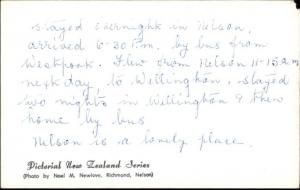 stayed overnight in Nelson,
arrived 6-30 P.m. by bus from
Westport. Flew from Nelson 11-15 am
next day to Wellington. stayed
two nights in Wellington & then
home by bus
Nelson is a lonely place.
Pictorial New Zealand Series
(Photo by Noel M. Newlove, Richmond, Nelson)